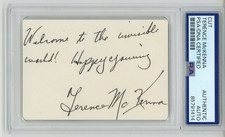 Welcome to the invisible
world! Happy journeying
Terence McKenna
CUT
TERENCE MCKENNA
PSA/DNA CERTIFIED
AUTHENTIC
AUTO
85791414